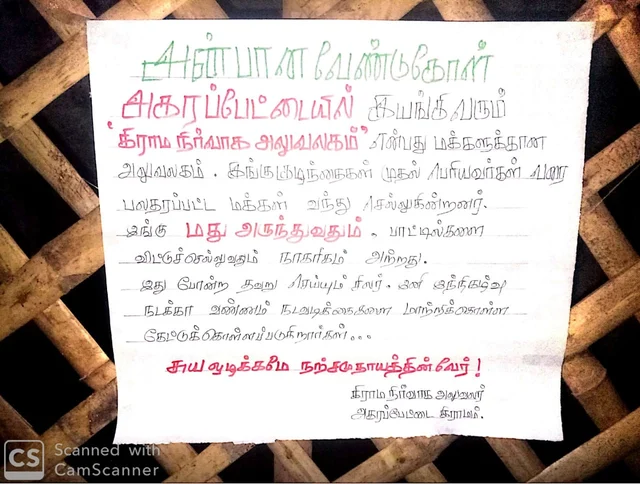 அன்பான வேண்டுகோள்
அகரப்பேட்டையில் இயங்கிவரும்
'கிராம நிர்வாக அலுவலகம்' என்பது மக்களுக்கான
அலுவலகம். இங்கு குழந்தைகள் முதல் பெரியவர்கள் வரை
பலதரப்பட்ட மக்கள் வந்து செல்லுகின்றனர்.
இங்கு மது அருந்துவதும், பாட்டில்களை
விட்டுச்செல்லுவதும் நாகரிகம் அற்றது.
இது போன்ற தவறு செய்யும் சிலர். இனி இந்நிகழ்வு
நடக்கா வண்ணம் நடவடிக்கைகளை மாற்றிக்கொள்ள
கேட்டுக்கொள்ளப்படுகிறார்கள்...
சுய ஒழுக்கமே நற்சமுதாயத்தின் வேர்!
கிராம நிர்வாக அலுவலர்
அகரப்பேட்டை கிராமம்.
CS Scanned with
CamScanner